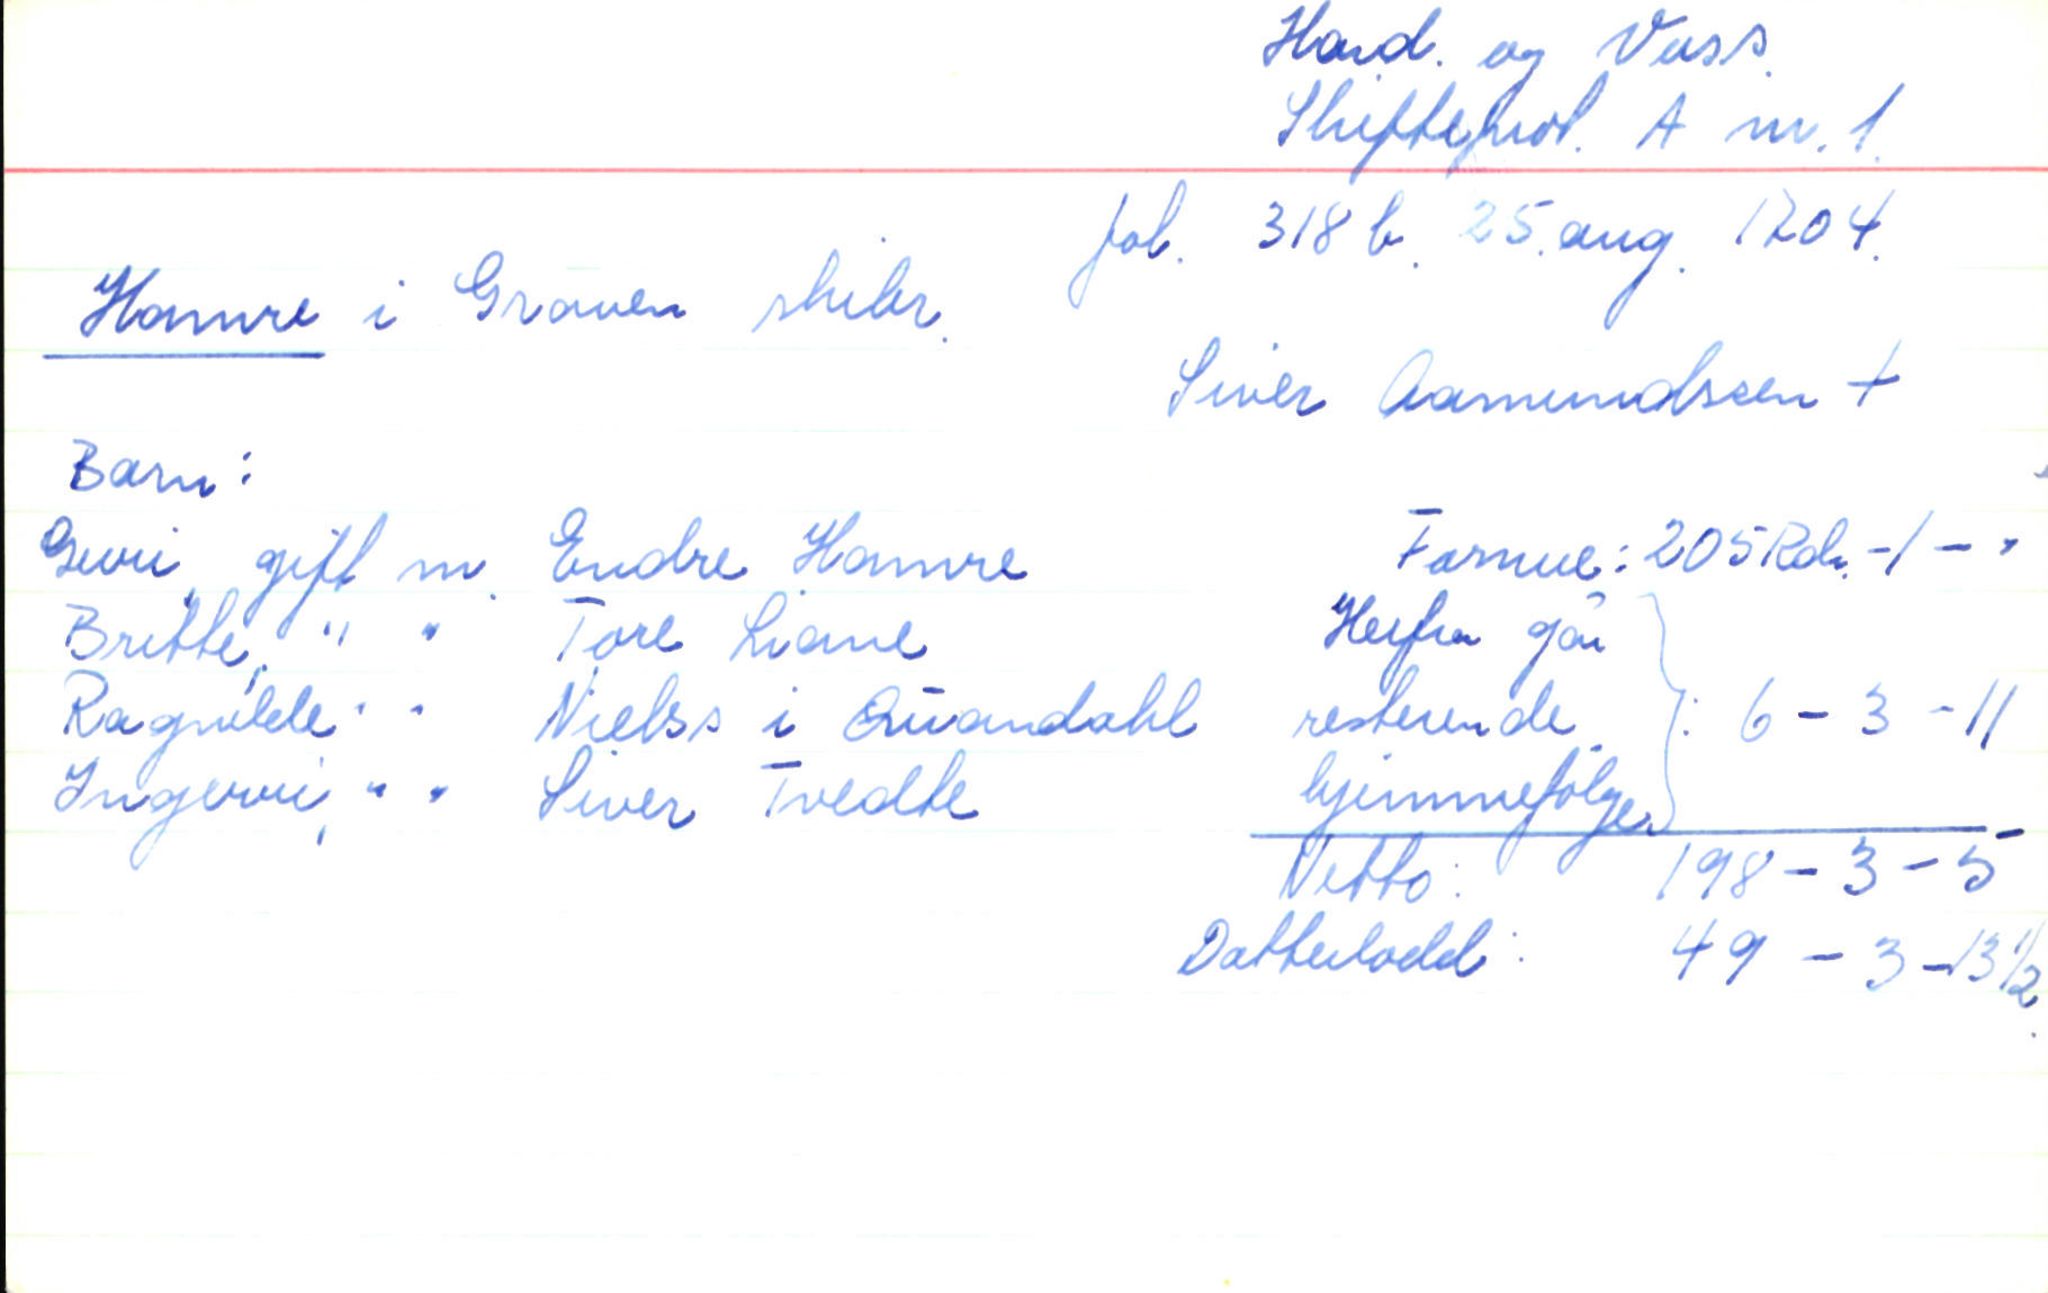 Hard. og Voss.
Skifteprot. A nr. 1.
fol. 318 b. 25. aug. 1704.
Hamre i Graven skibr.
Siver Aamundssen +
Barn:
Guri, gift m. Endre Hamre
Britte, " " Tore Liane
Ragnilde " " Nielss i Quandahl
Ingerui, " " Siver Tvedte
Formue: 205 Rdr. - 1 - "
Herfra går
resterende
hjemmefølge } : 6 - 3 - 11
Netto: 198 - 3 - 5
Datterlodd: 49 - 3 - 13 1/2.